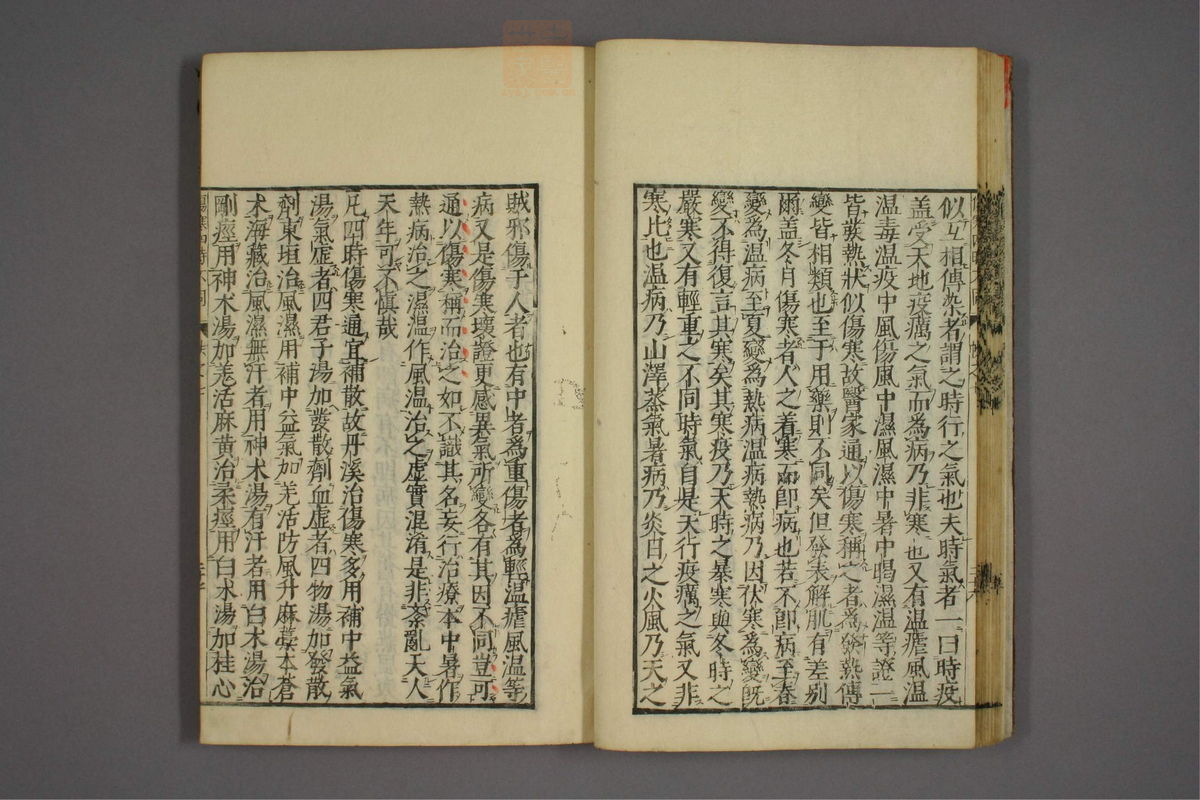 似互相傳染名謂之時行之氣也夫時氣者一曰時疫
盖受天地疫癘之氣而為病乃非寒也又有温瘧風温
温毒温疫中風傷風中濕風濕中暑中暍濕温等證一
皆發熱狀似傷寒故醫家通以傷寒稱之者為發熱傳
變皆相類也至于用藥則不同矣但發表解肌有差别
爾盖冬月傷寒者人之着寒而即病也若不即病至春
變為温病至夏變為熱病温病熱病乃因伏寒為變既
變不得復言其寒矣其寒疫乃天時之暴寒與冬時之
嚴寒又有輕重之不同時氣自是天行疫癘之氣又非
寒比也温病乃山澤蒸氣暑病乃炎日之火風乃天之
賊邪傷于人者也有中者為重傷者為輕温瘧風温等
病又是傷寒壞證更感異氣所變各有其因不同豈可
通以傷寒稱而治之如不識其名妄行治療本中暑作
熱病治之濕温作風温治之虛實混淆是非紊亂夭人
天年可不慎哉
凡四時傷寒通宜補散故丹溪治傷寒多用補中益氣
湯氣虛者四君子湯加發散劑血虛者四物湯加發散
劑東垣治風濕用補中益氣加羌活防風升麻藁本蒼
术海藏治風濕無汗者用神术湯有汗者用白术湯治
剛痙用神术湯加羌活麻黄治柔痙用白术湯加桂心
傷寒四時不同